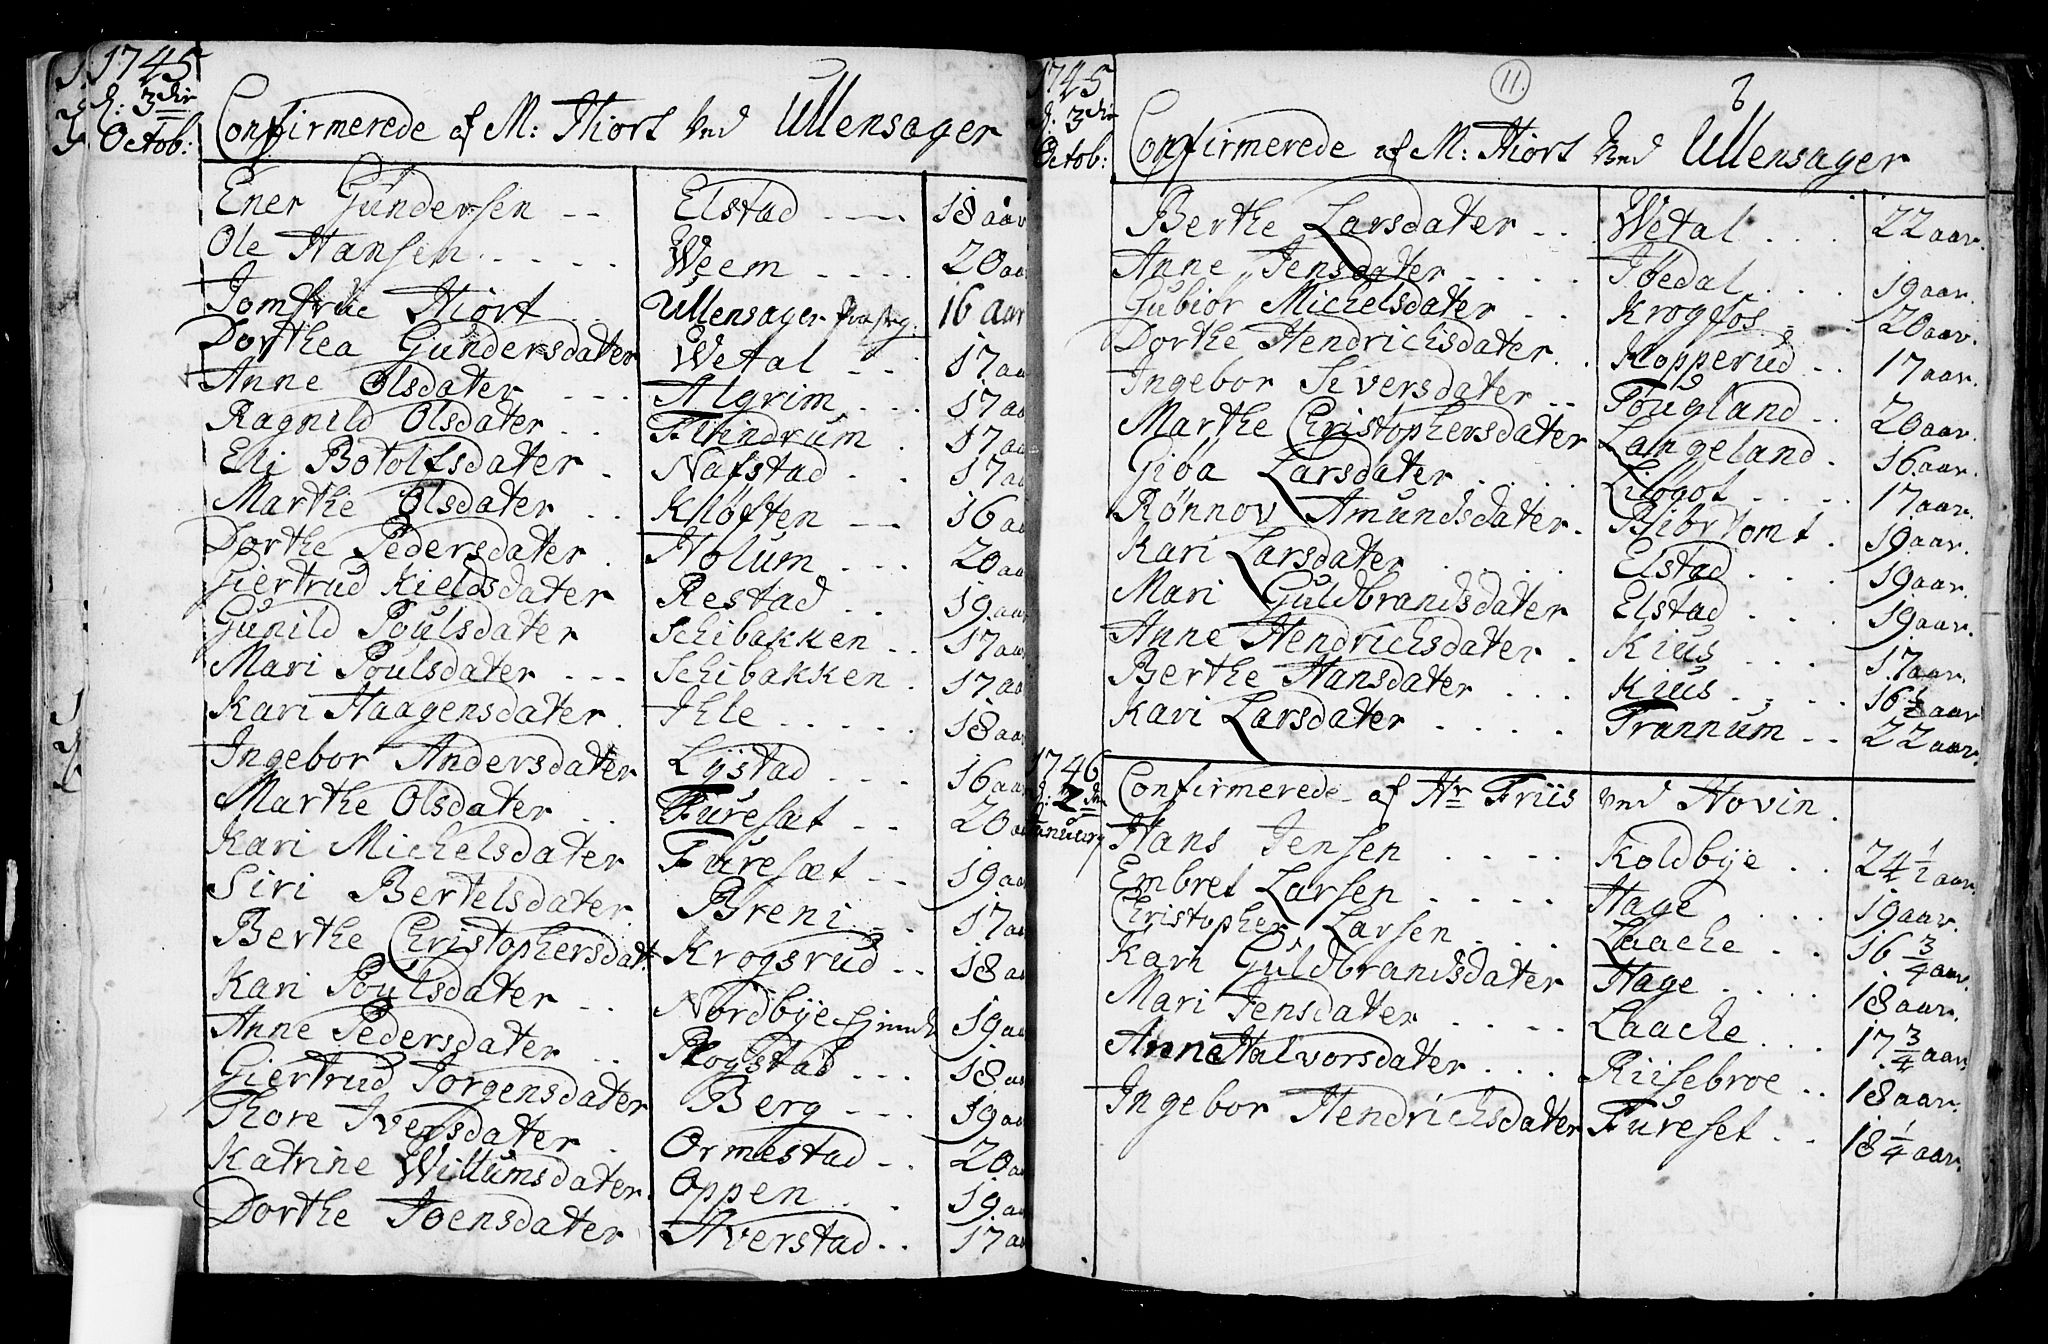 1745
d: 3die
Octob:
Confirmerede af M: Hiort ved Ullensager
Ener Gundersen -- Elstad ---- 18 aar
Ole Hansen ..... Weem ---- 20 aa
Jomfrue Hiort .. Ullensager Præsteg: 16 aar
Dorthea Gundersdater Wetal -- 17 aa
Anne Olsdater --- Algrim --- 17 aa
Ragnild Olsdater .. Hilindrum . 17 aa
Eli Botolfsdater . Nafstad .. 17 aa
Marthe Olsdater .. Kløften -- 16 aa
Dorthe Pedersdater . Holum --- 20 aa
Giertrud Kieldsdater Restad .. 19 aar
Gunild Poulsdater Schibakken .. 17 aar
Mari Poulsdater --- Schibakken . 17 aa
Kari Haagensdater . Ihle ..... 18 aa
Ingebor Andersdater Lystad --- 16 aar
Marthe Olsdater .. Furesæt -- 20 aa
Kari Michelsdater Furesæt -- 19 aa
Siri Bertelsdater Breni .. 17 aa
Berthe Christophersdat: Krogsrud -- 18 aa
Kari Poulsdater .. Nordbye 19 aa
Anne Pedersdater .. Rogstad --- 18 aa
Giertrud Jorgensdater Berg --- 19 aa
Thore Iversdater . Ormestad -- 20 aa
Katrine Willumsdater. Oppen ... 19 aa
Dorthe Joensdater Averstad .. 17 aa
11.
1745
d. 3die
Octob:
Confirmerede af M: Hiort ved Ullensager
Berthe Larsdater .. Wetal ... 22 aar.
Anne Jensdater .... Ibedal ... 19 aar.
Gubiör Michelsdater .. Krogfos . 20 aar.
Dorthe Hendrichsdater .. Kopperud .. 17 aar.
Ingebor Siversdater -- Fougland .. 20 aar.
Marthe Christophersdater Langeland . 16 aar.
Giba Larsdater .... Lillogot .... 17 aar.
Rønnov Amundsdater. Blibrtomt . 19 aar.
Kari Larsdater ..... Elstad ... 19 aar.
Mari Guldbrandsdater Elstad ... 19 aar.
Anne Hendrichsdater . Kius .... 17 aar.
Berthe Hansdater ... Kius .... 16 1/2 aar
Kari Larsdater .... Trannum -- 22 aar.
1746
d: 2den
Januarj
Confirmerede af Hr Friis ved Hovin.
Hans Jensen .... Koldbye .. 24 1/2 aar.
Embret Larsen .... Hage .... 19 aar.
Christopher Larsen ... Laache .. 16 3/4 aar.
Kari Guldbrandsdater Hage .... 18 aar.
Mari Jensdater .... Laache ... 17 3/4 aar.
Anne Halvorsdater ... Riisebroe .. 18 aar.
Ingebor Hendrichsdater Fureset .. 18 1/4 aar.